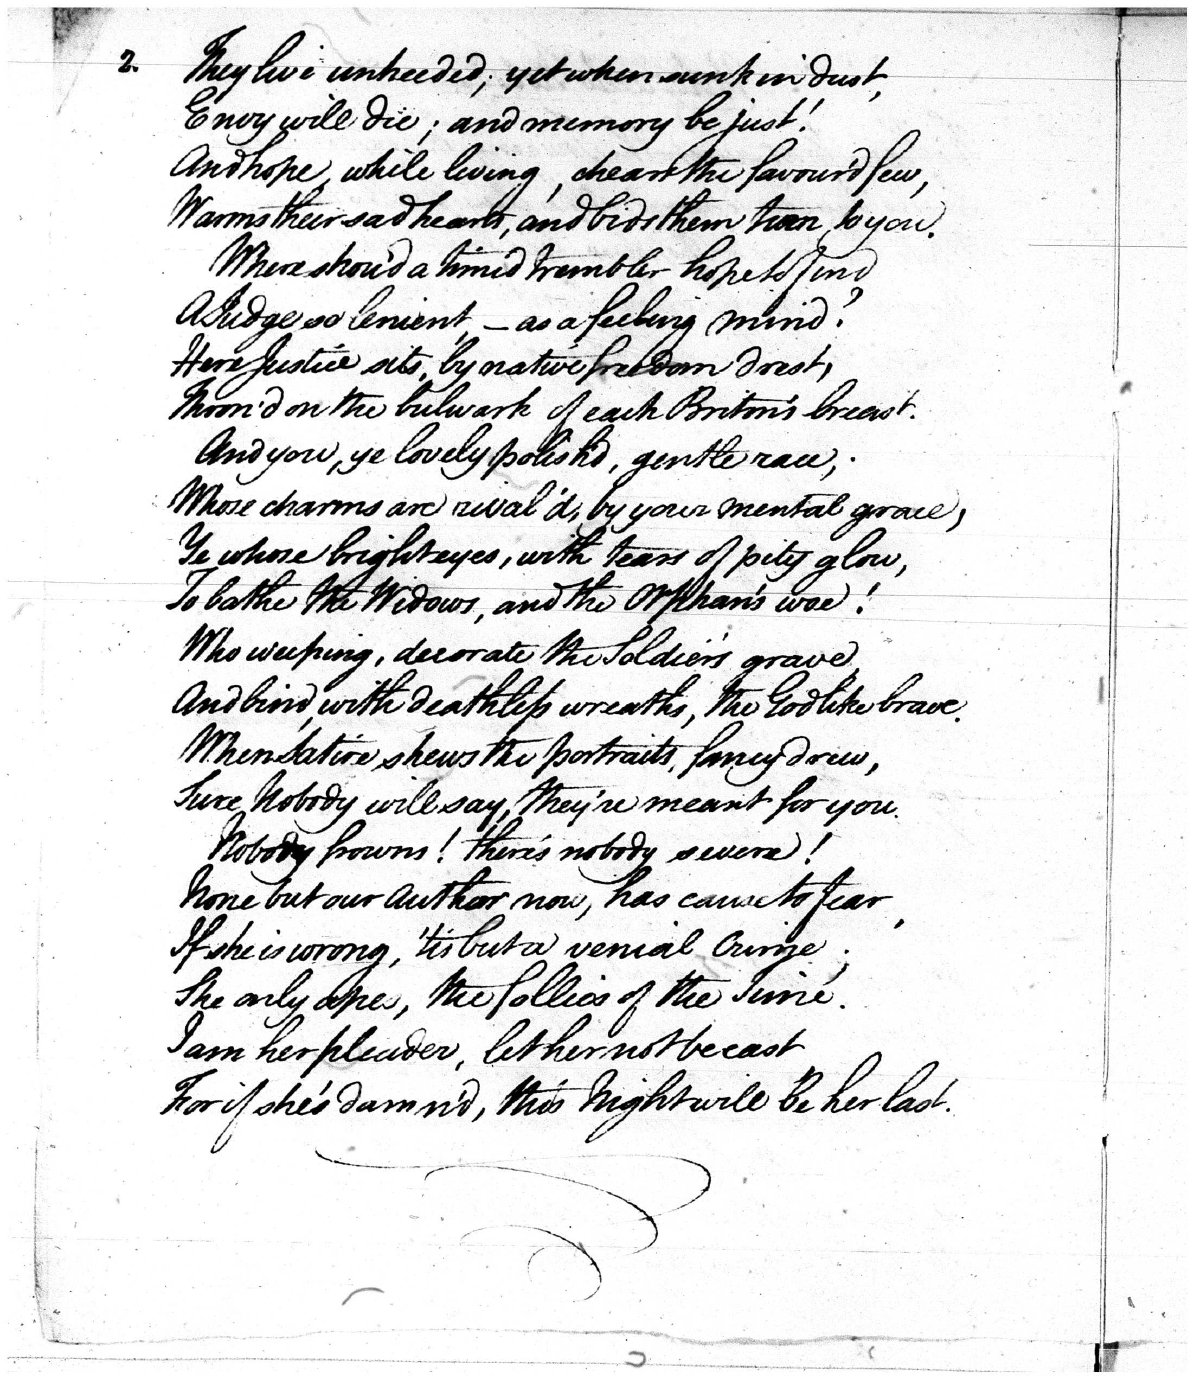 2. They live unheeded; yet when sunk in dust,
Envy will die; and memory be just!
And hope, while living, chears the favour'd few,
Warms their sad hearts, and bids them turn, to you.
Where shou'd a timid trembler hope to find
A Judge so lenient, – as a feeling mind?
Here Justice sits, by native freedom drest,
Thron'd on the bulwark of each Briton's breast.
And you, ye lovely polish'd, gentle race,
Whose charms are rival'd, by your mental grace,
Ye whose bright eyes, with tears of pity glow,
To bathe the Widows, and the Orphan's woe!
Who weeping, decorate the Soldier's grave,
And bind, with deathless wreaths, the Godlike brave.
When Satire shews the portraits, fancy drew,
Sure Nobody will say, they're meant for you.
Nobody frowns! there's nobody severe!
None but our Author now, has cause to fear,
If she is wrong, 'tis but a venial Crime;
She only apes, the follies of the Time.
I am her pleader, let her not be cast
For if she's damn'd, this Night will be her last.